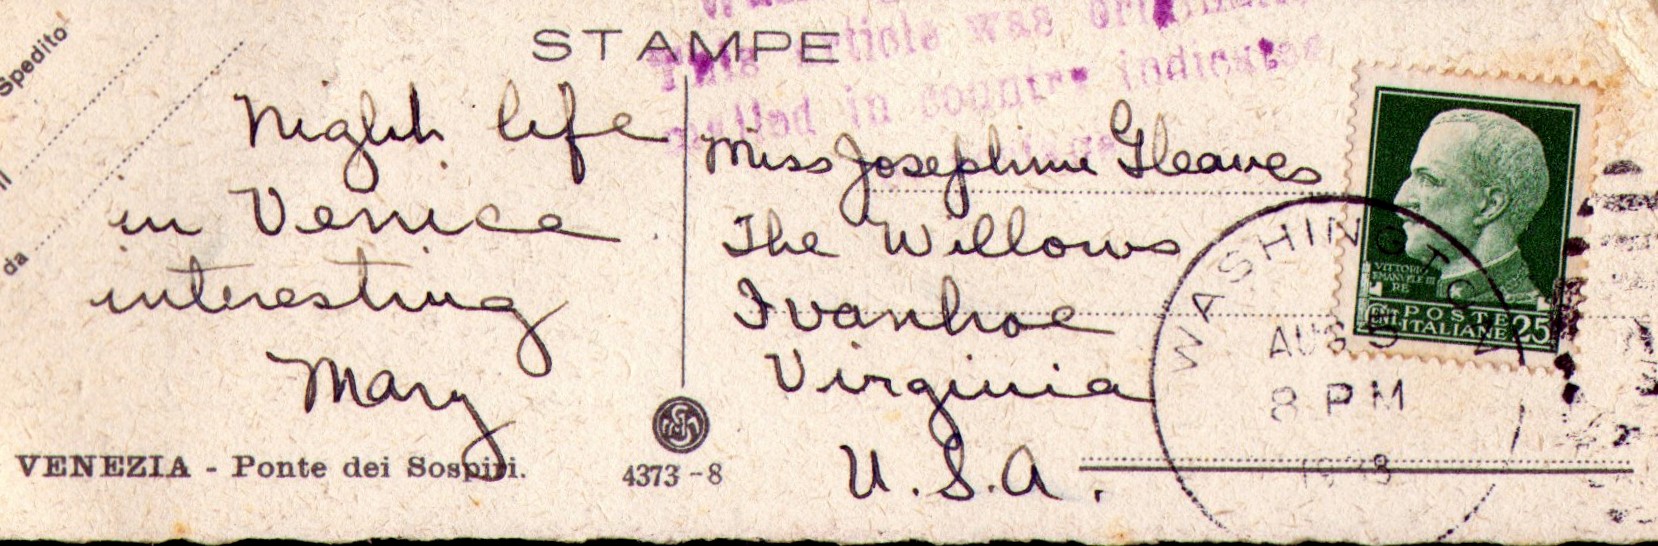 STAMPE
Spedito
Il
da
This article was
mailed in country indicated
Night life
in Venice
interesting
Mary
VENEZIA - Ponte dei Sospiri.
4373-8
Miss Josephine Gleaves
The Willows
Ivanhoe
Virginia
U.S.A.
VITTORIO
EMANVELE III
RE
POSTE
ITALIANE 25
WASHINGTON
AUG 5
8 PM
1938